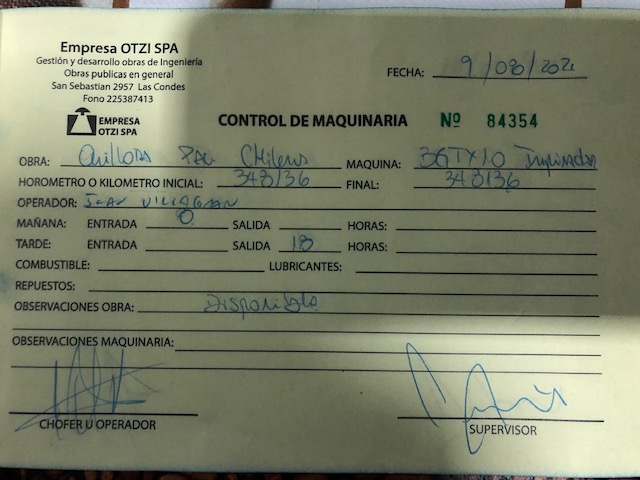 Empresa OTZI SPA
Gestión y desarrollo obras de Ingeniería
Obras publicas en general
San Sebastian 2957 Las Condes
Fono 225387413
FECHA: 9/08/202
EMPRESA
OTZI SPA
CONTROL DE MAQUINARIA Nº 84354
OBRA: Quillota Chileno MAQUINA:
HOROMETRO O KILOMETRO INICIAL: 348136 FINAL: 348136
OPERADOR: VILLAGRAN
MAÑANA: ENTRADA 8 SALIDA HORAS:
TARDE: ENTRADA SALIDA 18 HORAS:
COMBUSTIBLE: LUBRICANTES:
REPUESTOS:
OBSERVACIONES OBRA: Disponible
OBSERVACIONES MAQUINARIA:
CHOFER U OPERADOR SUPERVISOR